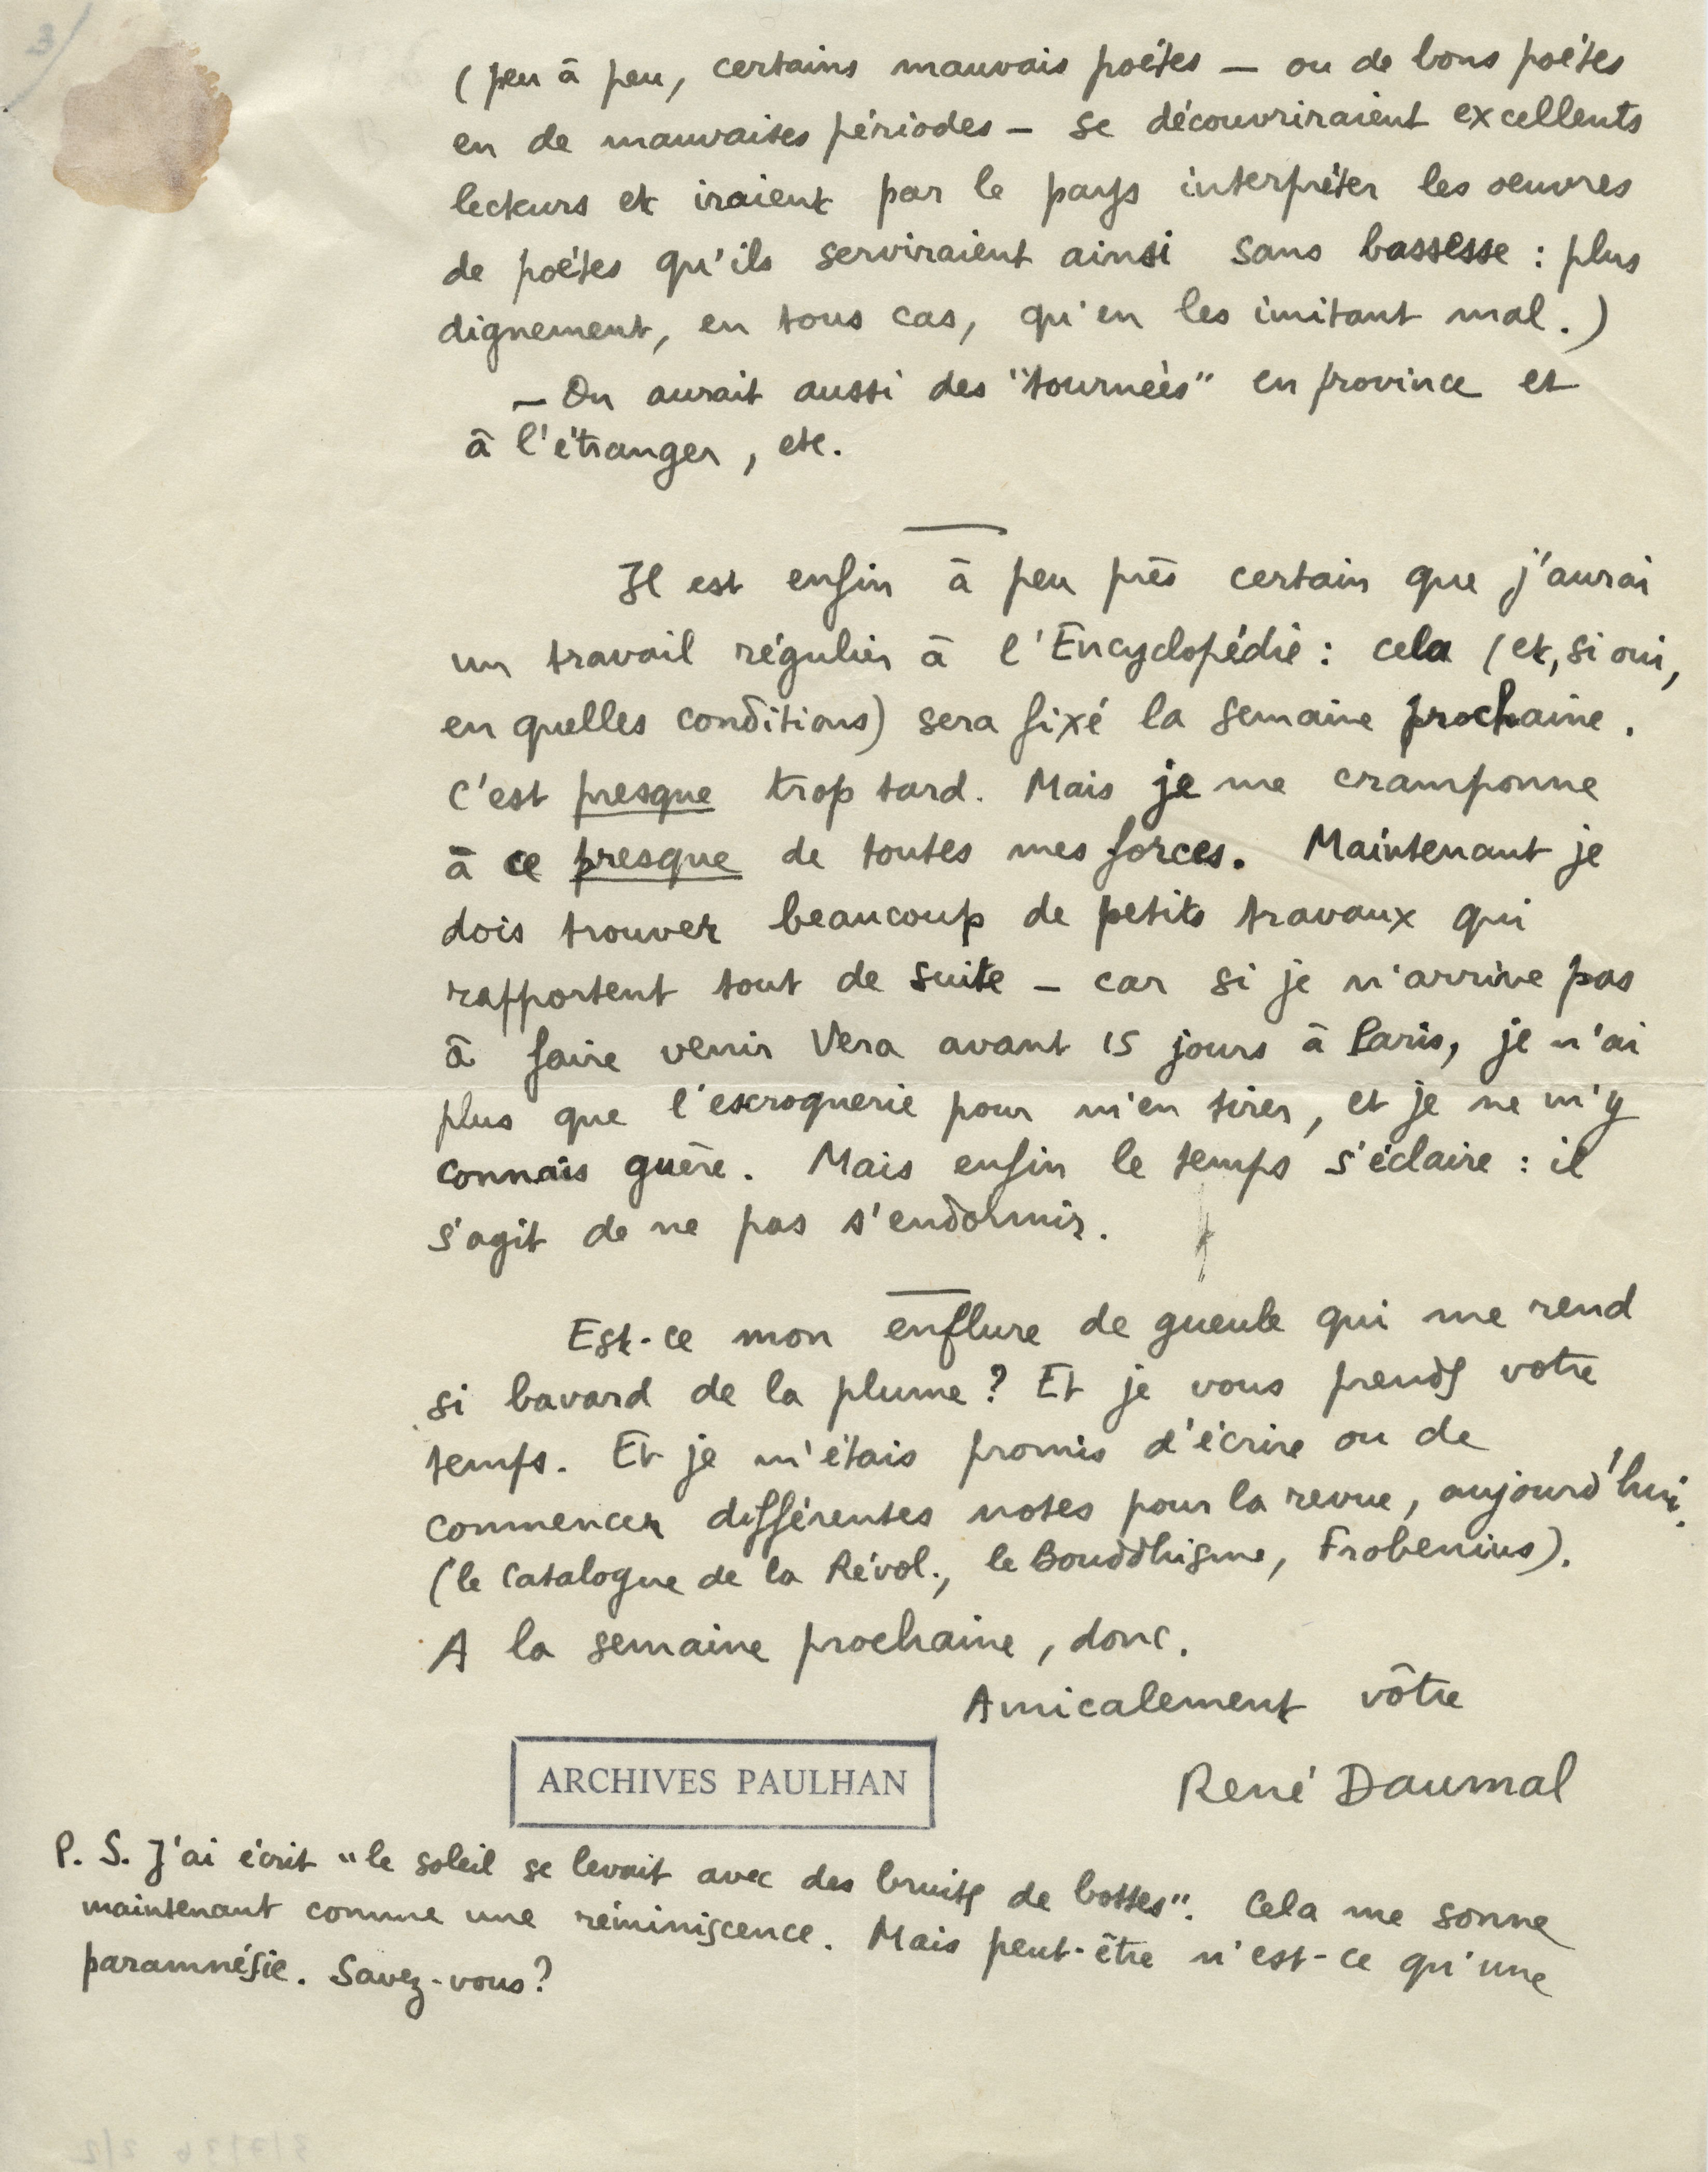 (peu à peu, certains mauvais poètes — ou de bons poètes
en de mauvaises périodes — se découvriraient excellents
lecteurs et iraient par le pays interpréter les oeuvres
de poètes qu'ils serviraient ainsi sans bassesse : plus
dignement, en tous cas, qu'en les imitant mal.)
— On aurait aussi des "tournées" en province et
à l'étranger, etc.
Il est enfin à peu près certain que j'aurai
un travail régulier à l'Encyclopédie : cela (et, si oui,
en quelles conditions) sera fixé la semaine prochaine.
C'est presque trop tard. Mais je me cramponne
à ce presque de toutes mes forces. Maintenant je
dois trouver beaucoup de petits travaux qui
rapportent tout de suite — car si je n'arrive pas
à faire venir Vera avant 15 jours à Paris, je n'ai
plus que l'escroquerie pour m'en tirer, et je ne m'y
connais guère. Mais enfin le temps s'éclaire : il
s'agit de ne pas s'endormir.
Est-ce mon enflure de gueule qui me rend
si bavard de la plume ? Et je vous prends votre
temps. Et je m'étais promis d'écrire ou de
commencer différentes notes pour la revue, aujourd'hui.
(le Catalogue de la Révol., le Bouddhisme, Frobenius).
A la semaine prochaine, donc.
Amicalement vôtre
René Daumal
ARCHIVES PAULHAN
P. S. J'ai écrit "le soleil se levait avec des bruits de bottes". Cela me sonne
maintenant comme une réminiscence. Mais peut-être n'est-ce qu'une
paramnésie. Savez-vous ?